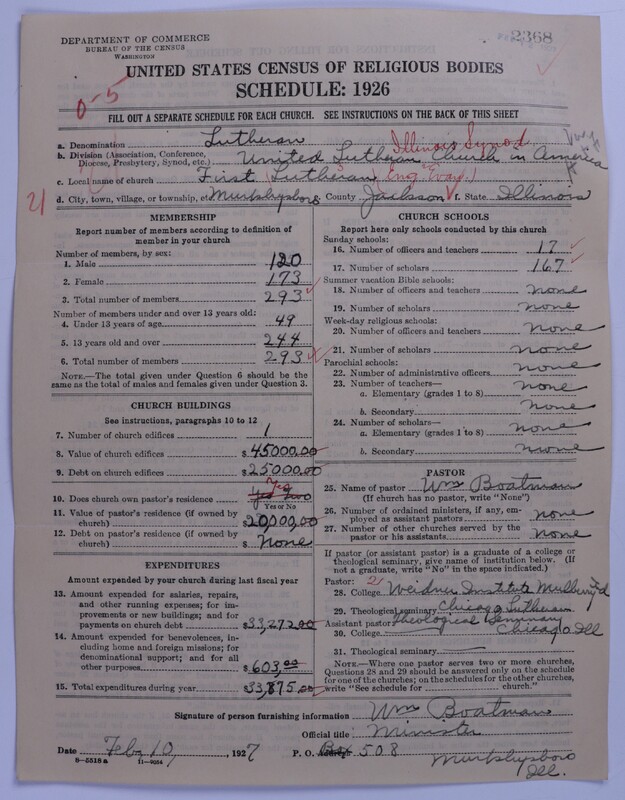 DEPARTMENT OF COMMERCE
BUREAU OF THE CENSUS
WASHINGTON
2368
UNITED STATES CENSUS OF RELIGIOUS BODIES
SCHEDULE: 1926
0-5
FILL OUT A SEPARATE SCHEDULE FOR EACH CHURCH. SEE INSTRUCTIONS ON THE BACK OF THIS SHEET
a. Denomination Lutheran
Illinois Synod
b. Division (Association, Conference, Diocese, Presbytery, Synod, etc.) United Lutheran Church in America
c. Local name of church First Lutheran (Eng. Evan.)
21
d. City, town, village, or township, etc. Murphysboro County Jackson f. State Illinois
MEMBERSHIP
Report number of members according to definition of
member in your church
Number of members, by sex:
1. Male 120
2. Female 173
3. Total number of members 293
Number of members under and over 13 years old:
4. Under 13 years of age 49
5. 13 years old and over 244
6. Total number of members 293
NOTE.—The total given under Question 6 should be the
same as the total of males and females given under Question 3.
CHURCH BUILDINGS
See instructions, paragraphs 10 to 12
7. Number of church edifices 1
8. Value of church edifices $45000.00
9. Debt on church edifices $25000.00
Yes
10. Does church own pastor's residence Yes
Yes or No
11. Value of pastor's residence (if owned by
church) $20,000.00
12. Debt on pastor's residence (if owned by
church) $None
EXPENDITURES
Amount expended by your church during last fiscal year
13. Amount expended for salaries, repairs,
and other running expenses; for im-
provements or new buildings; and for
payments on church debt $33,272.00
14. Amount expended for benevolences, in-
cluding home and foreign missions; for
denominational support; and for all
other purposes $603.00
15. Total expenditures during year $33,875.00
CHURCH SCHOOLS
Report here only schools conducted by this church
Sunday schools:
16. Number of officers and teachers 17
17. Number of scholars 167
Summer vacation Bible schools:
18. Number of officers and teachers none
19. Number of scholars none
Week-day religious schools:
20. Number of officers and teachers none
21. Number of scholars none
Parochial schools:
22. Number of administrative officers none
23. Number of teachers—
a. Elementary (grades 1 to 8) none
b. Secondary none
24. Number of scholars—
a. Elementary (grades 1 to 8) none
b. Secondary none
PASTOR
25. Name of pastor Wm Boatman
(If church has no pastor, write "None")
26. Number of ordained ministers, if any, em-
ployed as assistant pastors none
27. Number of other churches served by the
pastor or his assistants none
If pastor (or assistant pastor) is a graduate of a college or
theological seminary, give name of institution below. (If
not a graduate, write "No" in the space indicated.)
Pastor: 2
28. College Weidner Institute Mulberry Ind
29. Theological seminary Chicago Lutheran
Assistant pastor: Theological Seminary
30. College Chicago Ill
31. Theological seminary
NOTE.—Where one pastor serves two or more churches,
Questions 28 and 29 should be answered only on the schedule
for one of the churches; on the schedules for the other churches,
write "See schedule for church."
Signature of person furnishing information Wm Boatman
Official title Minister
Date Feb 10, 1927 P. O. Box 508
Murphysboro
Ill.
8-5518 a 11-9264